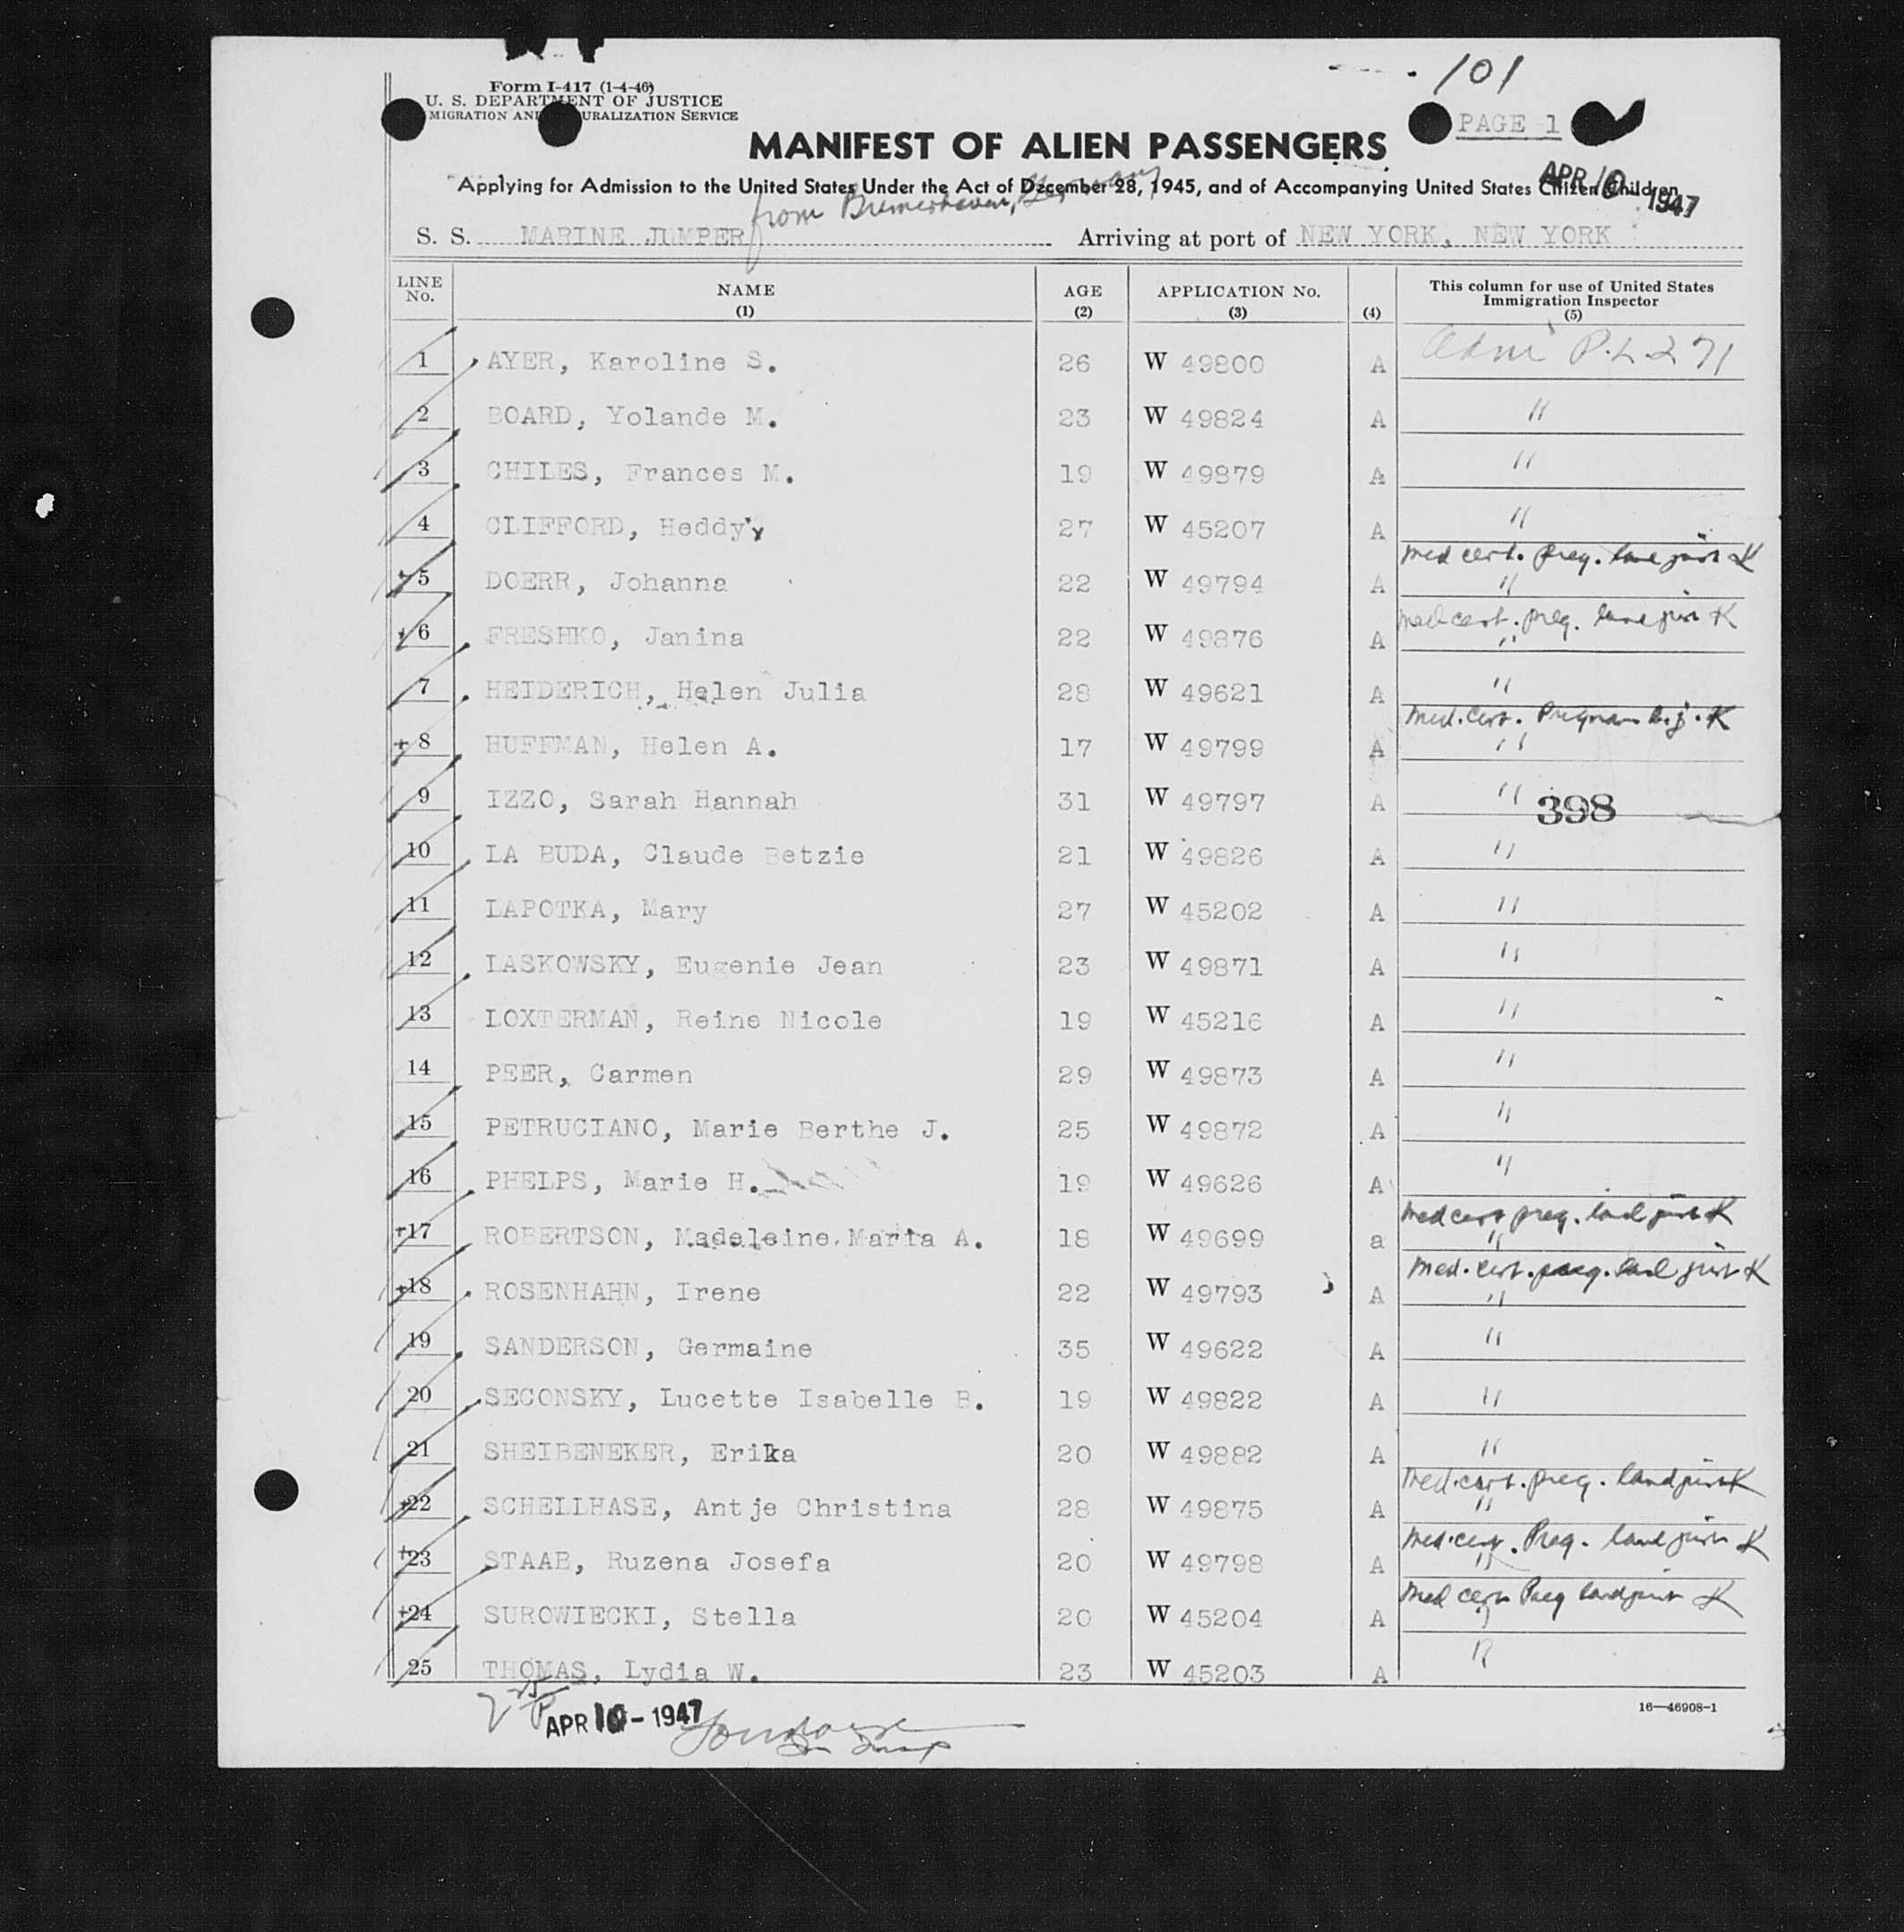 101
Form I-417 (1-4-46)
U. S. DEPARTMENT OF JUSTICE
MIGRATION AND URALIZATION SERVICE
PAGE 1
MANIFEST OF ALIEN PASSENGERS
APR 10 1947
Applying for Admission to the United States Under the Act of December 28, 1945, and of Accompanying United States Citizen Children
from Bremerhaven, Germany
S. S. MARINE JUMPER Arriving at port of NEW YORK, NEW YORK
LINE No. NAME (1) AGE (2) APPLICATION No. (3) (4) This column for use of United States Immigration Inspector (5)
1 AYER, Karoline S. 26 W 49800 A Adm P.L 271
2 BOARD, Yolande M. 23 W 49824 A "
3 CHILES, Frances M. 19 W 49879 A "
4 CLIFFORD, Heddy 27 W 45207 A "
Med cert. preg. land K
5 DOERR, Johanna 22 W 49794 A "
Med cert. preg. land K
6 FRESHKO, Janina 22 W 49876 A "
7 HEIDERICH, Helen Julia 28 W 49621 A "
Med. Cert. K
8 HUFFMAN, Helen A. 17 W 49799 A "
9 IZZO, Sarah Hannah 31 W 49797 A " 398
10 LA BUDA, Claude Betzie 21 W 49826 A "
11 LAPOTKA, Mary 27 W 45202 A "
12 LASKOWSKY, Eugenie Jean 23 W 49871 A "
13 LOXTERMAN, Reine Nicole 19 W 45216 A "
14 PEER, Carmen 29 W 49873 A "
15 PETRUCIANO, Marie Berthe J. 25 W 49872 A "
16 PHELPS, Marie H. 19 W 49626 A "
Med cert preg. land K
17 ROBERTSON, Madeleine Maria A. 18 W 49699 a "
Med. cert. preg. land K
18 ROSENHAHN, Irene 22 W 49793 A "
19 SANDERSON, Germaine 35 W 49622 A "
20 SECONSKY, Lucette Isabelle B. 19 W 49822 A "
21 SHEIBENEKER, Erika 20 W 49882 A "
Med. cert. preg. land K
22 SCHELLHASE, Antje Christina 28 W 49875 A "
Med. cert. Preg. land K
23 STAAB, Ruzena Josefa 20 W 49798 A "
Med cert Preg land K
24 SUROWIECKI, Stella 20 W 45204 A "
25 THOMAS, Lydia W. 23 W 45203 A "
16—46908-1
APR 10 - 1947